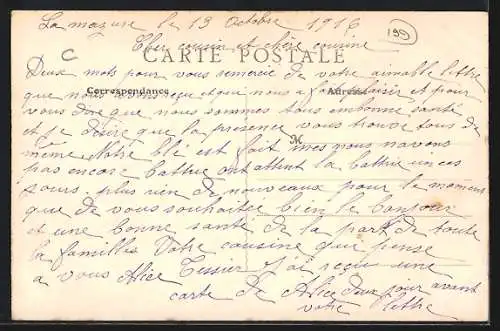 La mazure le 13 Octobre 1916
199
Cher cousin et chère cousine
C
CARTE POSTALE
Deux mots pour vous remercie de votre aimable lettre
Correspondance
Adresse
que nous avons reçu et qui nous a fait plaisir et pour
vous dire que nous sommes tous en bonne santé
et je désire que la presence vous trouve tous de
M
même Notre blé est fait mes nous navons
pas encore battue on attent la battue un ces
jours. plus rien de nouveaux pour le moment
que de vous souhaitée bien le bonjour
et une bonne santé de la part de toute
la familles Votre cousine qui pense
a vous Alice Tessier J'ai reçu une
carte de Alice deux jour avant
votre lettre